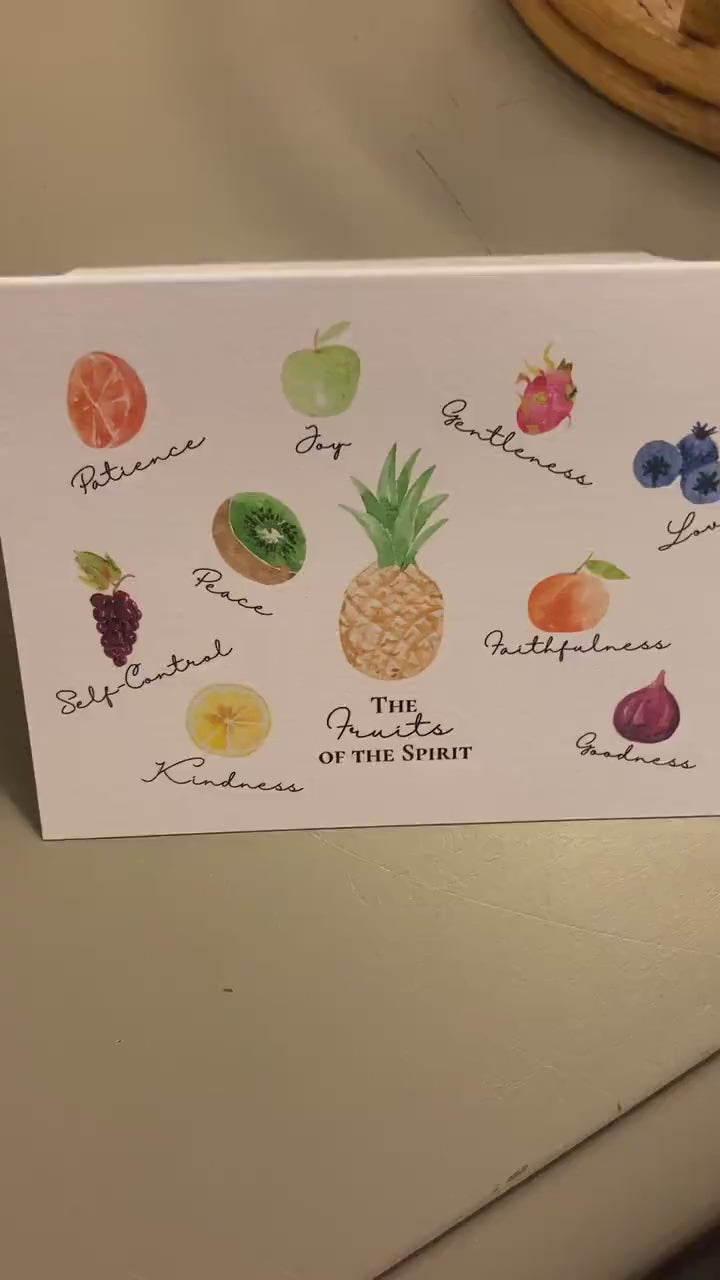 Patience
Joy
Gentleness
Lov
Peace
Self-Control
Faithfulness
Kindness
Goodness
THE
Fruits
OF THE SPIRIT